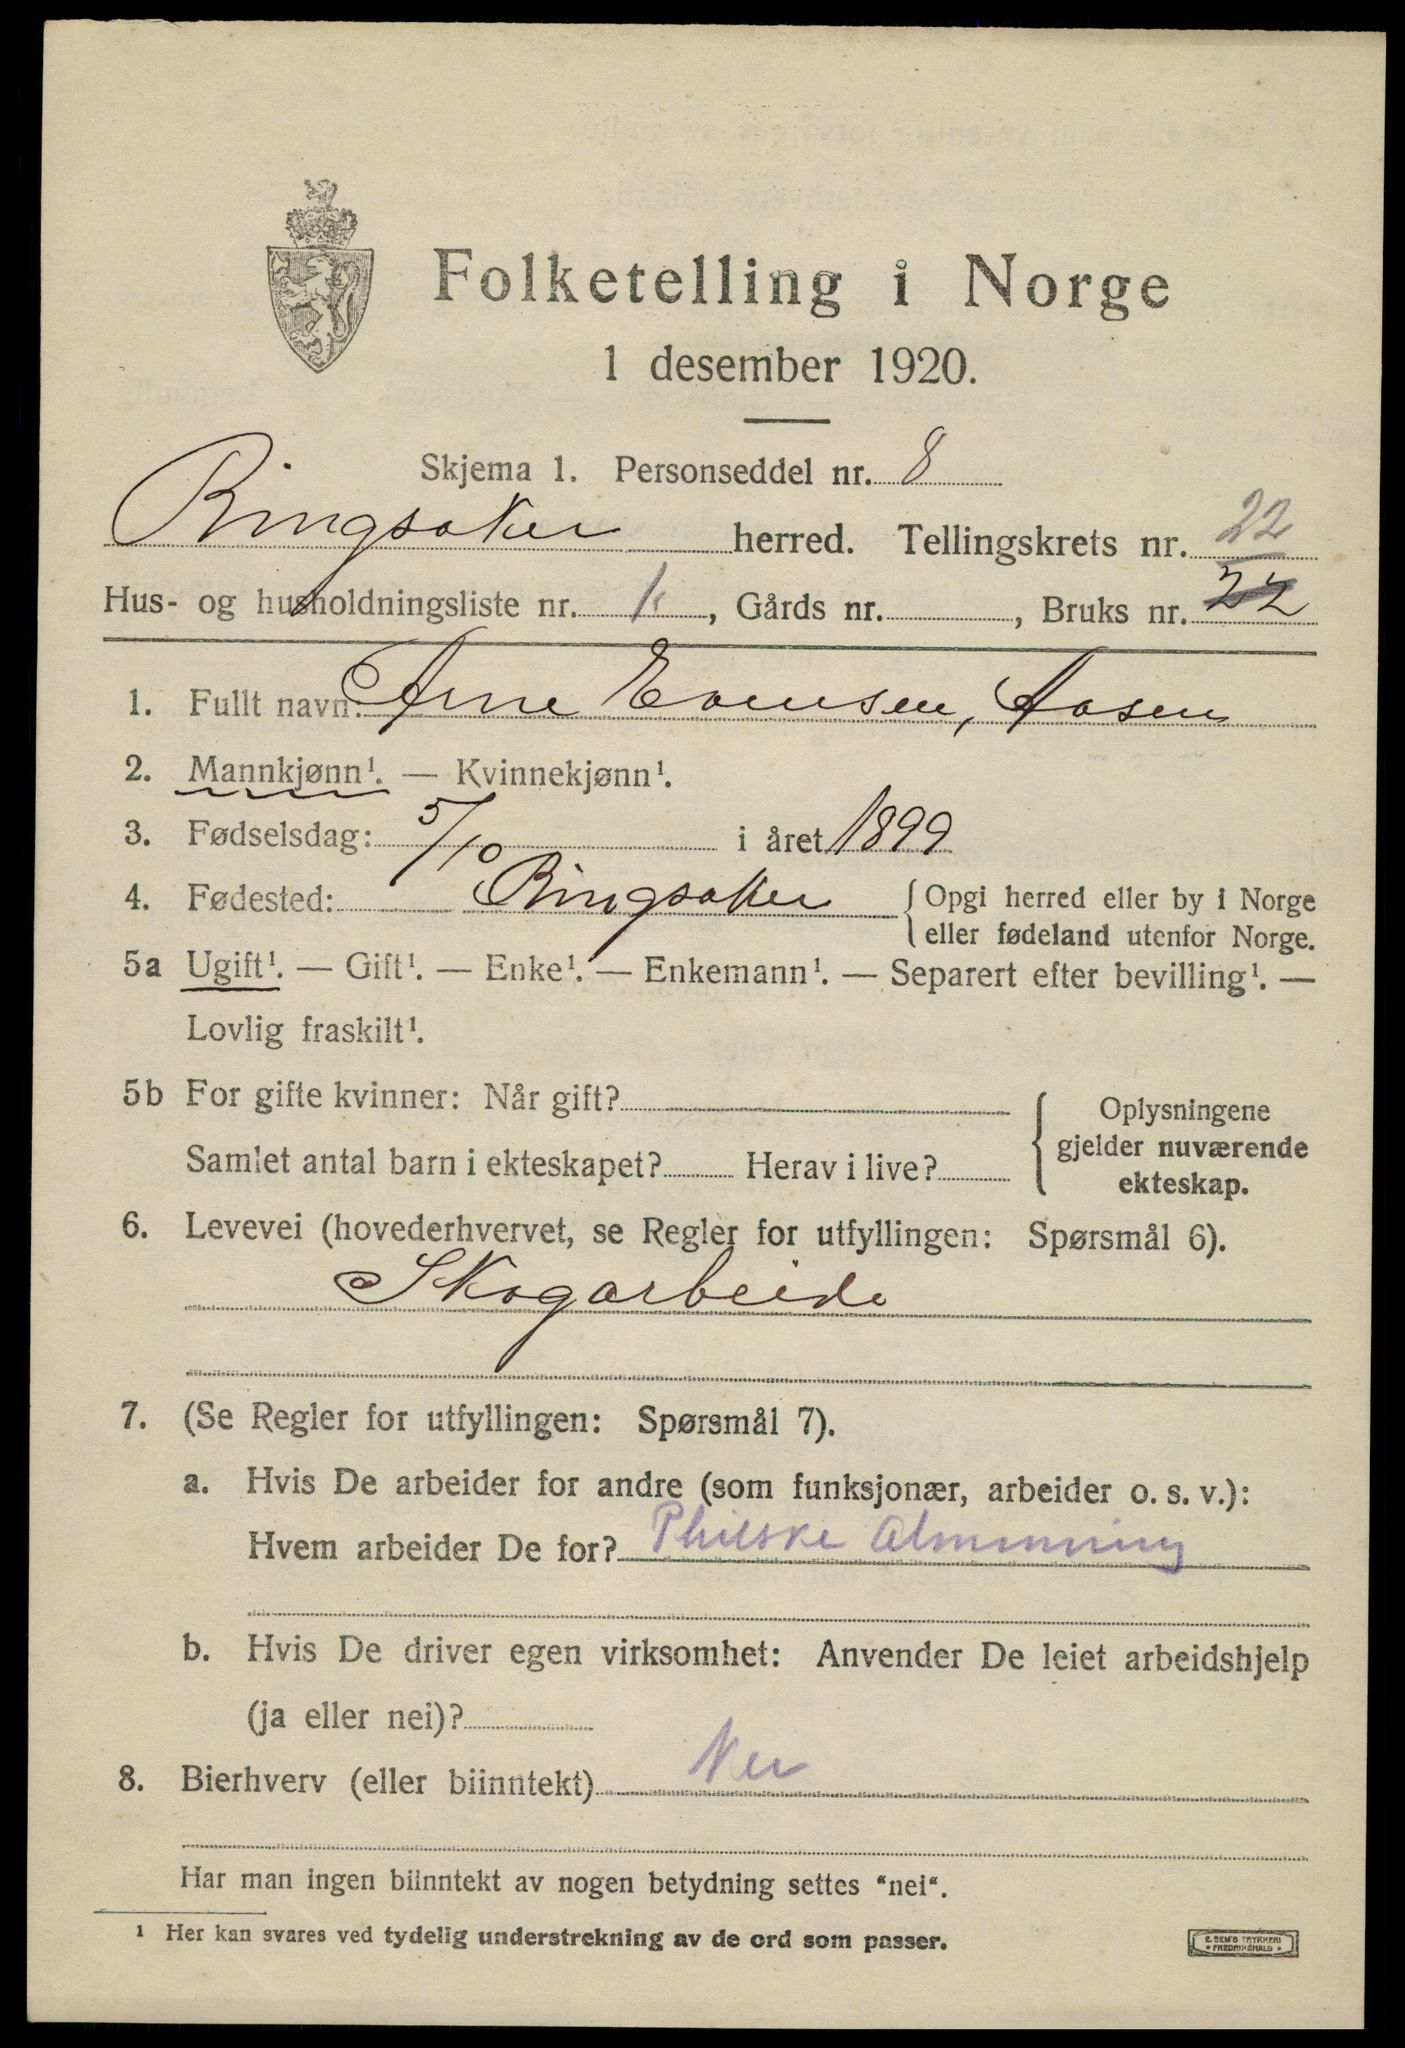 Folketelling i Norge
1 desember 1920.
Skjema 1. Personseddel nr. 8
Ringsaker herred. Tellingskrets nr. 22
Hus- og husholdningsliste nr. 1, Gårds nr. , Bruks nr. 22
1. Fullt navn: Arne Evensen, Aasen
2. Mannkjønn¹. — Kvinnekjønn¹.
3. Fødselsdag: 5/10 i året 1899
4. Fødested: Ringsaker { Opgi herred eller by i Norge
eller fødeland utenfor Norge.
5a Ugift¹. — Gift¹. — Enke¹. — Enkemann¹. — Separert efter bevilling¹. —
Lovlig fraskilt¹.
5b For gifte kvinner: Når gift?
Samlet antal barn i ekteskapet? Herav i live?
{ Oplysningene
gjelder nuværende
ekteskap.
6. Levevei (hovederhvervet, se Regler for utfyllingen: Spørsmål 6).
Skogarbeide
7. (Se Regler for utfyllingen: Spørsmål 7).
a. Hvis De arbeider for andre (som funksjonær, arbeider o. s. v.):
Hvem arbeider De for? Phílske Almenning
b. Hvis De driver egen virksomhet: Anvender De leiet arbeidshjelp
(ja eller nei)?
8. Bierhverv (eller biinntekt) Nei
Har man ingen biinntekt av nogen betydning settes "nei".
¹ Her kan svares ved tydelig understrekning av de ord som passer.
E. SEM'S TRYKKERI
FREDRIKSHALD